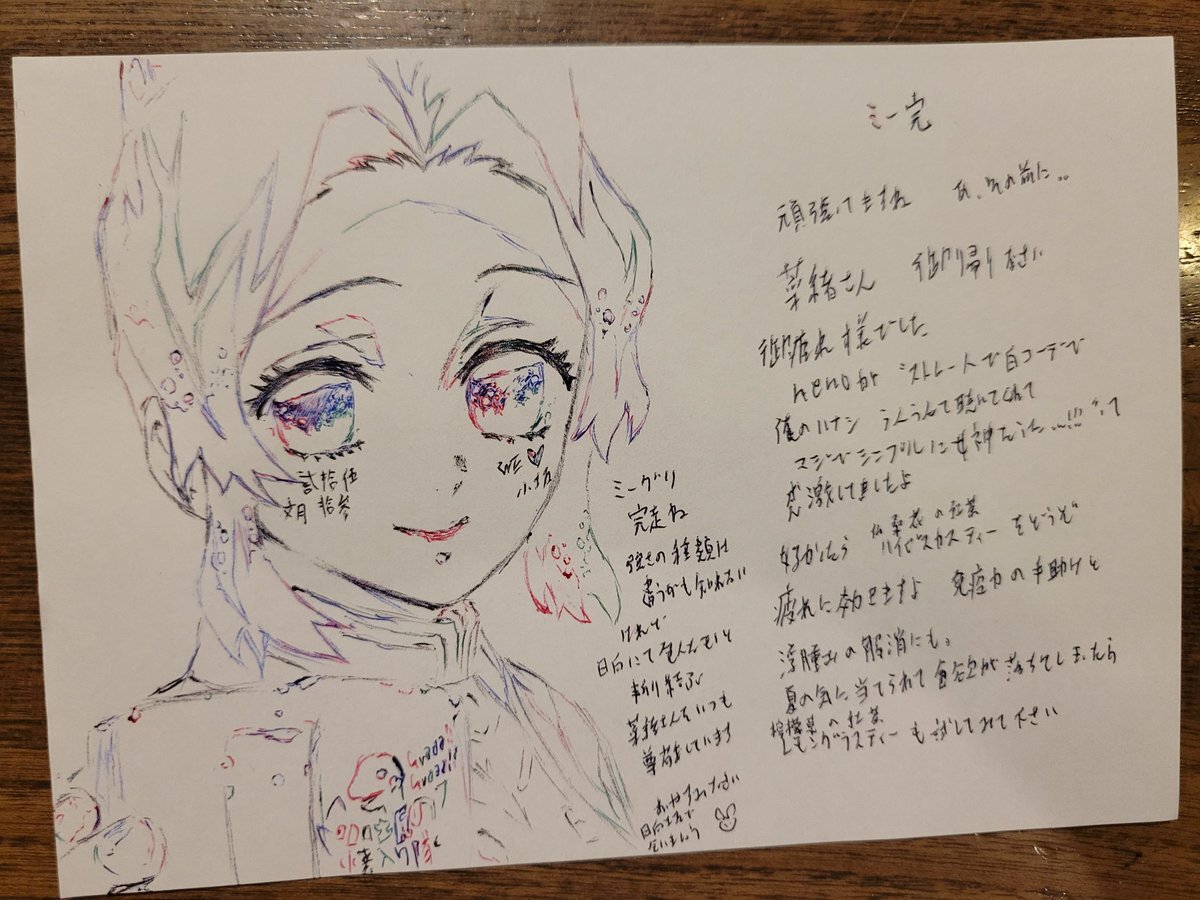 ミー完
頑張ってますね あ、その前に..
菜緒さん 御帰りなさい
御疲れ様でした
neruが ストレートで白コーデで
僕のハナシ うんうんって聴いてくれて
マジでシンプルに女神だった...!!! って
感激してましたよ
好かったら の紅茶
ハイビスカスティーをどうぞ
疲れに効きますよ 免疫力の手助けと
浮腫みの解消にも。
夏の気に当てられて食欲が落ちてしまったら
の紅茶
レモングラスティーも試してみて下さい
弐拾伍
文月 拾参
WE ♡
小坂
ミーグリ
完走ね
強さの種類は
違うかも知れない
けれど
日向にて
菜緒さんをいつも
尊敬しています
おやすみなさい
日向坂で
会いましょう